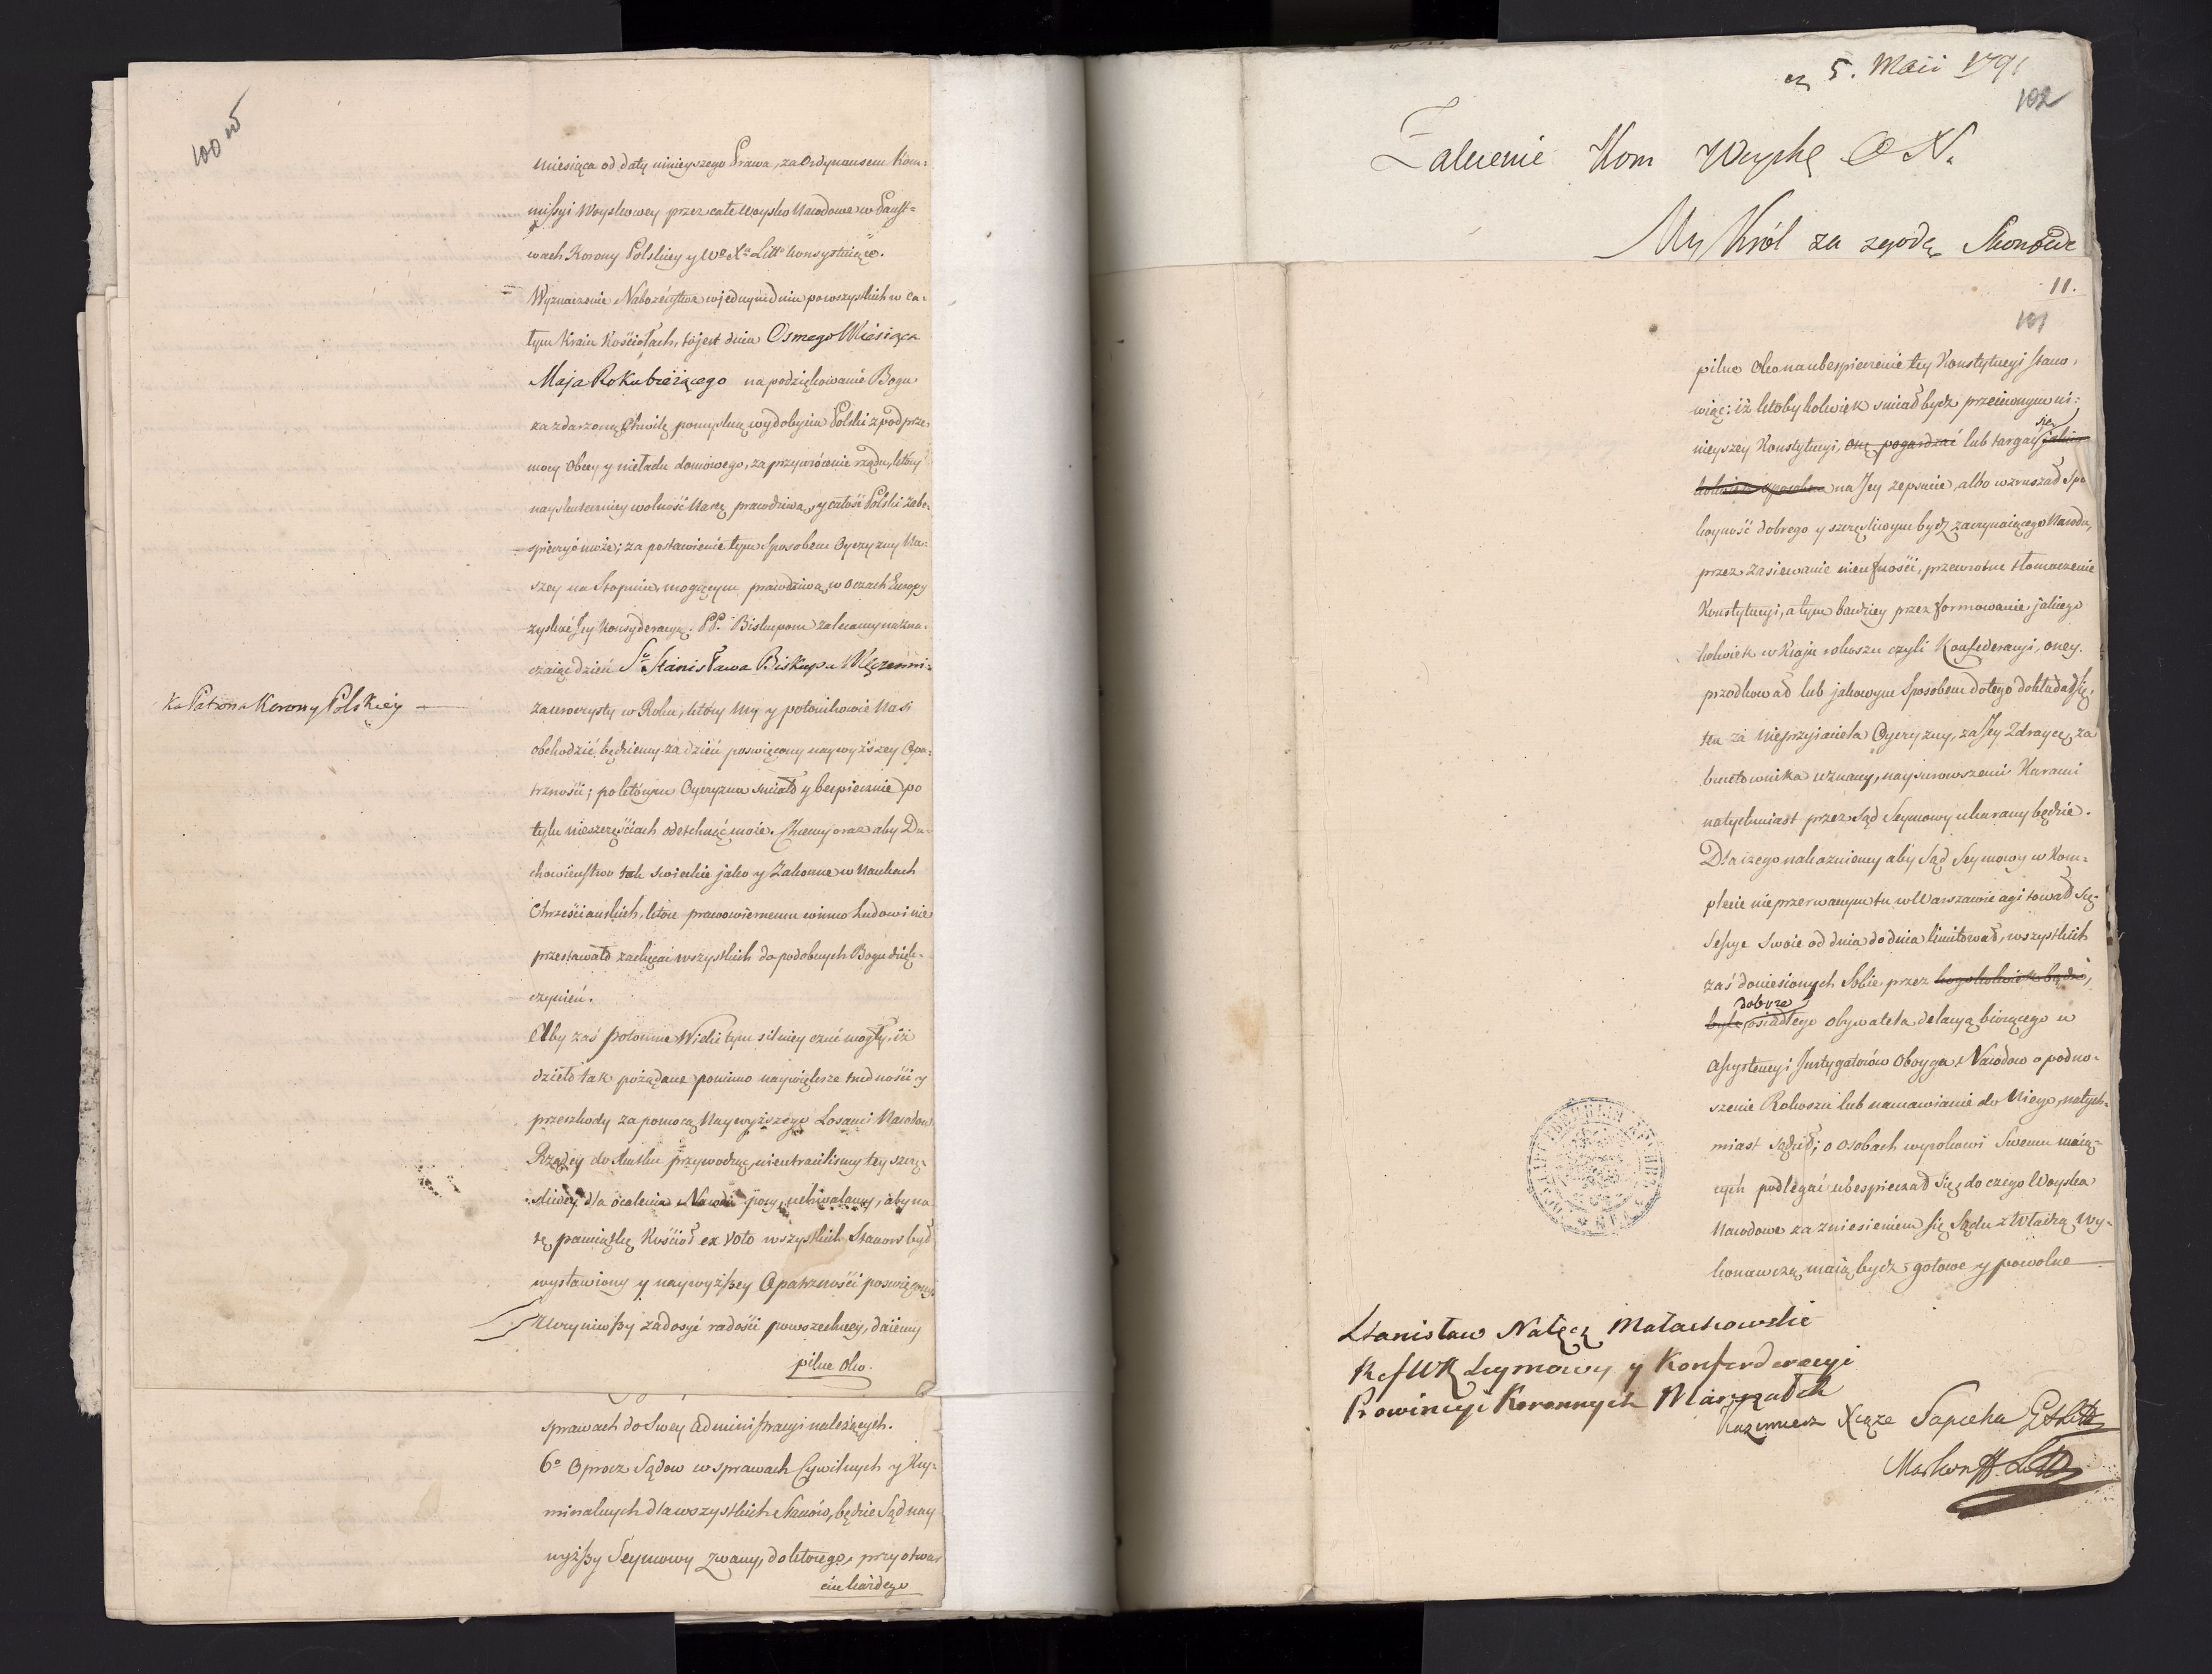 100 v
miesiąca od daty ninieyszego Prawa, za Ordynansem Kom=
missyi Woyskowey przez całe woysko Narodowe w Państ=
wach Korony Polskiey y Wo Xa Litto konsystuiące.
Wyznaczenie Nabożeństwa w jednym dniu po wszystkich w ca=
łym Kraiu Kościołach, to jest dnia Osmego Miesiąca
Maja Roku bieżącego na podziękowanie Bogu
za zdarzoną Chwilę pomyślną wydobycia Polski z pod prze=
mocy obcey y nieładu domowego, za przywrócenie rządu, który
nayskuteczniey wolność Naszą prawdziwą, y całość Polski zabe=
spieczyć może; za postawienie tym Sposobem Oyczyzny Na=
szey na Stopniu, mogącym prawdziwą w Oczach Europy
zyskać Jey Konsyderacyą. PP. Biskupom zalecamy nazna=
czaiąc dzień So Stanisława Biskupa Męczenni=
ka Patrona Korony Polskiey
za uroczysty w Roku, który My y potomkowie Nasi
obchodzić będziemy za dzień poswięcony naywyższey Opa=
trzności; po którym Oyczyzna smiało y bespiecznie po
tylu nieszczęściach odetchnąć może. Chcemy oraz aby Du=
chowieństwo tak swieckie jako y Zakonne w Naukach
Chrześciańskich, które prawowiernemu winno Ludowi nie
przestawało zachęcać wszystkich do podobnych Bogu dzięk=
czynień.
Aby zaś potomne Wieki tym silniey czuć mogły, iż
dzieło tak pożądane pomimo naywiększe trudności y
przeszkody za pomocą Naywyższego Losami Narodów
Rządcy do skutku przywodząc, nieutraciliśmy tey szczę=
śliwey dla ocalenia Narodu pory, uchwalamy, aby na
tę pamiątkę Kościoł ex voto wszystkich Stanow był
wystawiony y naywyższey Opatrzności poswięcony.
Uczyniwszy zadosyć radości powszechney, daiemy
pilne oko.
sprawach do Swey administracyi należących.
6o Oprocz Sądow w sprawach Cywilnych y Kry=
minalnych dla wszystkich Stanów, będzie Sąd nay
wyższy Seymowy zwany, do którego przy otwar
ciu każdego
5. Maii 1791
102
Zalecenie Kom Woyske O N.
My Król za zgodą Skonfede
11.
101
pilne oko na ubespieczenie tey Konstytucyi stano=
wiąc: iż ktoby kolwiek smiał bydź przeciwnym ni=
nieyszey Konstytucyi, onę pogardzać lub targać się jakim
kolwiek sposobem na Jey zepsucie, albo wzruszał Spo
koyność dobrego y szczęśliwym bydź zaczynaiącego Narodu,
przez zasiewanie nieufności, przewrotne tłomaczenie
Konstytucyi, a tym bardziey przez formowanie jakiego
kolwiek w Kraju rokoszu czyli Konfederacyi, oney
przodkował lub jakowym Sposobem do tego dokładał się,
ten za nieprzyiaciela Oyczyzny, za Jey Zdraycę, za
buntownika uznany, naysurowszemi Karami
natychmiast przez Sąd Seymowy ukarany będzie.
Dla czego nakazuiemy aby Sąd Seymowy w Kom=
plecie nieprzerwanym tu w Warszawie agitował się,
Sessye Swoie od dnia do dnia limitował, wszystkich
zaś doniesionych Sobie przez kogokolwiek bądź,
byle dobrze osiadłego obywatela delacyą biorącego w
assystencyi Instygatorów Oboyga Narodow o podno=
szenie Rokoszu lub namawianie do Niego, natych=
miast sądził; o osobach wyrokowi Swemu maią=
cych podlegać ubespieczał się, do czego Woyska
Narodowe za zniesieniem się Sądu z Władzą Wy=
konawczą maią bydź gotowe y powolne
Stanisław Nałęcz Małachowski
Ref WK Seymowy y Konfederacyi
Prowincyi Koronnych Marszałek
Kazimierz Xiąże Sapieha